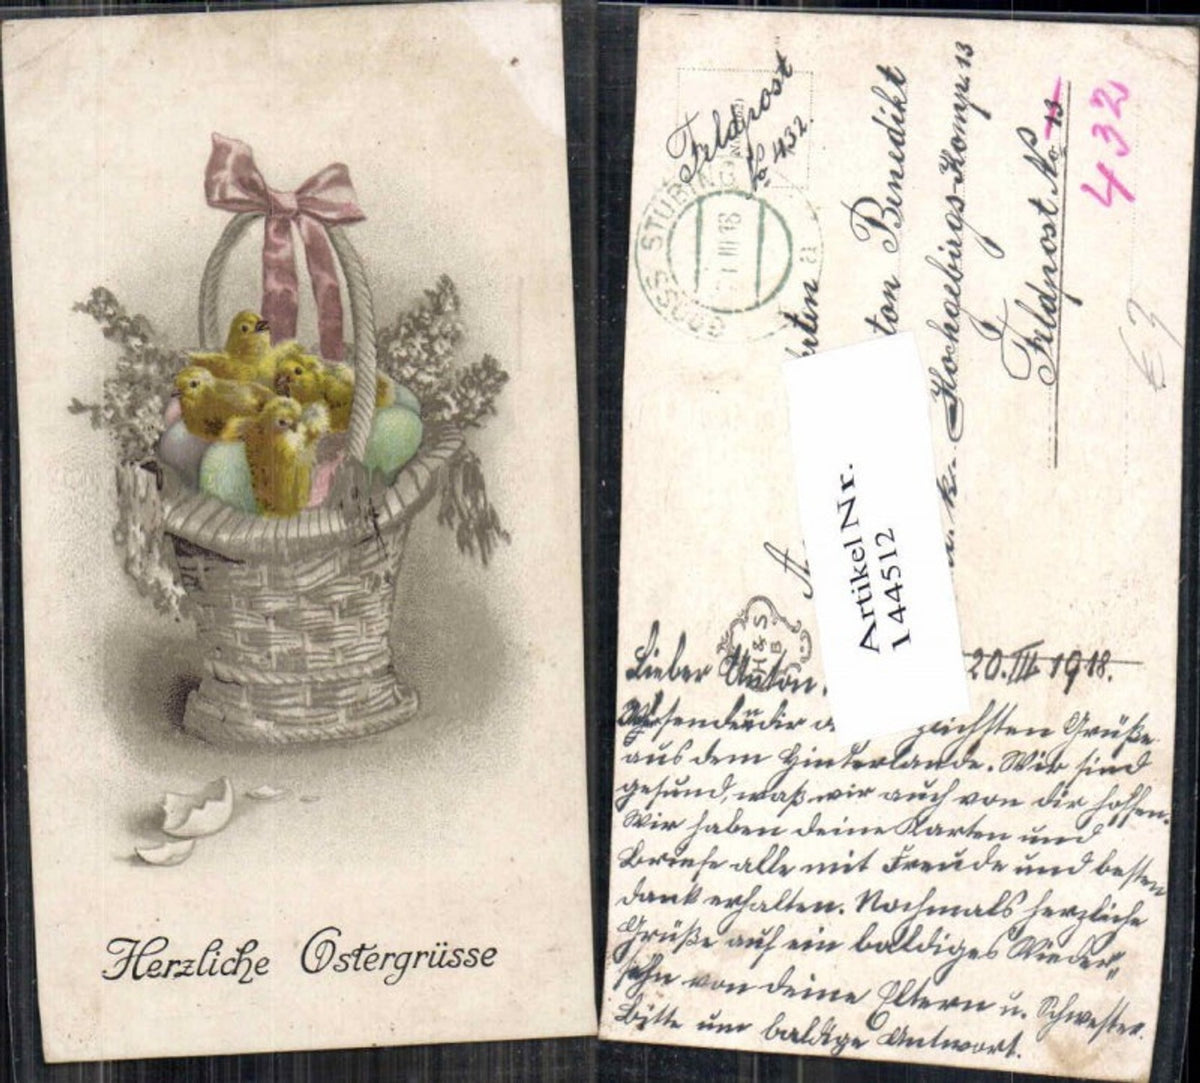 Herzliche Ostergrüsse
Feldpost
No 432.
GROSS STÜBING
III 18
a
432
ton Benedikt
k. Hochgebirgs-Komp. 13
Feldpost No 13
Artikel Nr.
144512
H & S
B
20. III 1918.
Lieber Anton
senden dir zlichsten Grüße
aus dem Hinterlande. Wir sind
gesund, was wir auch von dir hoffen.
Wir haben deine Karten und
Briefe alle mit Freude und besten
Dank erhalten. Nochmals herzliche
Grüße auf ein baldiges Wieder-
sehn von deine Eltern u. Schwester.
Bitte um baldige Antwort.